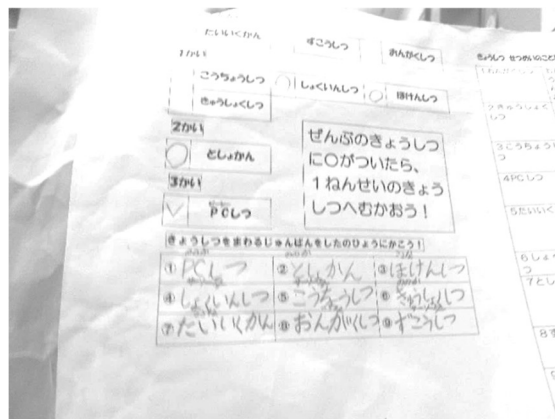 たいいくかん ずこうしつ おんがくしつ
1かい
こうちょうしつ しょくいんしつ ほけんしつ
きゅうしょくしつ
2かい
としょかん
3かい
PCしつ
ぜんぶのきょうしつ
に○がついたら、
1ねんせいのきょう
しつへむかおう！
きょうしつをまわるじゅんばんをしたのひょうにかこう！
①PCしつ ②としょかん ③ほけんしつ
④しょくいんしつ ⑤こうちょうしつ ⑥きゅうしょくしつ
⑦たいいくかん ⑧おんがくしつ ⑨ずこうしつ
きょうしつ せつめいのことば
3こうちょうし
つ
4PCしつ
5たいいく
6しょ
7とし
8ず